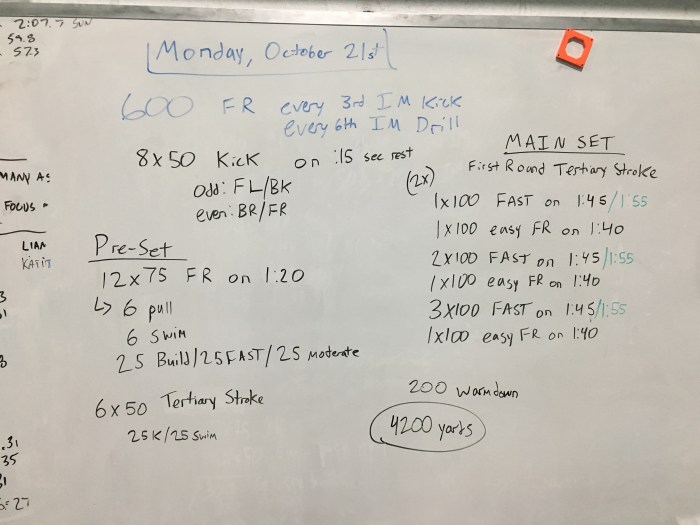 2:07.7 SUN
59.8
57.3
Monday, October 21st
600 FR every 3rd IM Kick
every 6th IM Drill
8x50 Kick on :15 sec rest
odd: FL/BK
even: BR/FR
MANY AS
FOCUS
LIAN
Pre-Set
12x75 FR on 1:20
↳ 6 pull
6 swim
25 Build/25 FAST/25 moderate
6x50 Tertiary Stroke
25K/25 swim
MAIN SET
First Round Tertiary Stroke
(2x)
1x100 FAST on 1:45/1:55
1x100 easy FR on 1:40
2x100 FAST on 1:45/1:55
1x100 easy FR on 1:40
3x100 FAST on 1:45/1:55
1x100 easy FR on 1:40
200 warmdown
4200 yards
.31
35
27